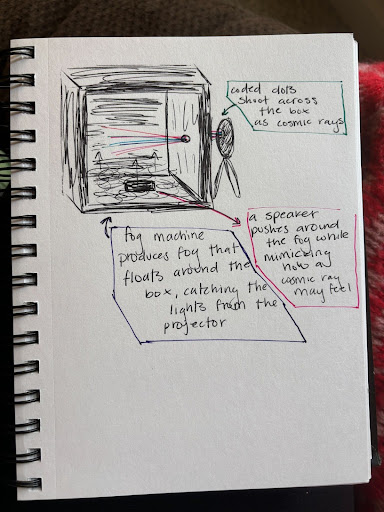 coded dots
shoot across
the box
as cosmic rays
a speaker
pushes around
the fog while
mimicking
how a
cosmic ray
may feel
fog machine
produces fog that
floats around the
box, catching the
lights from the
projector